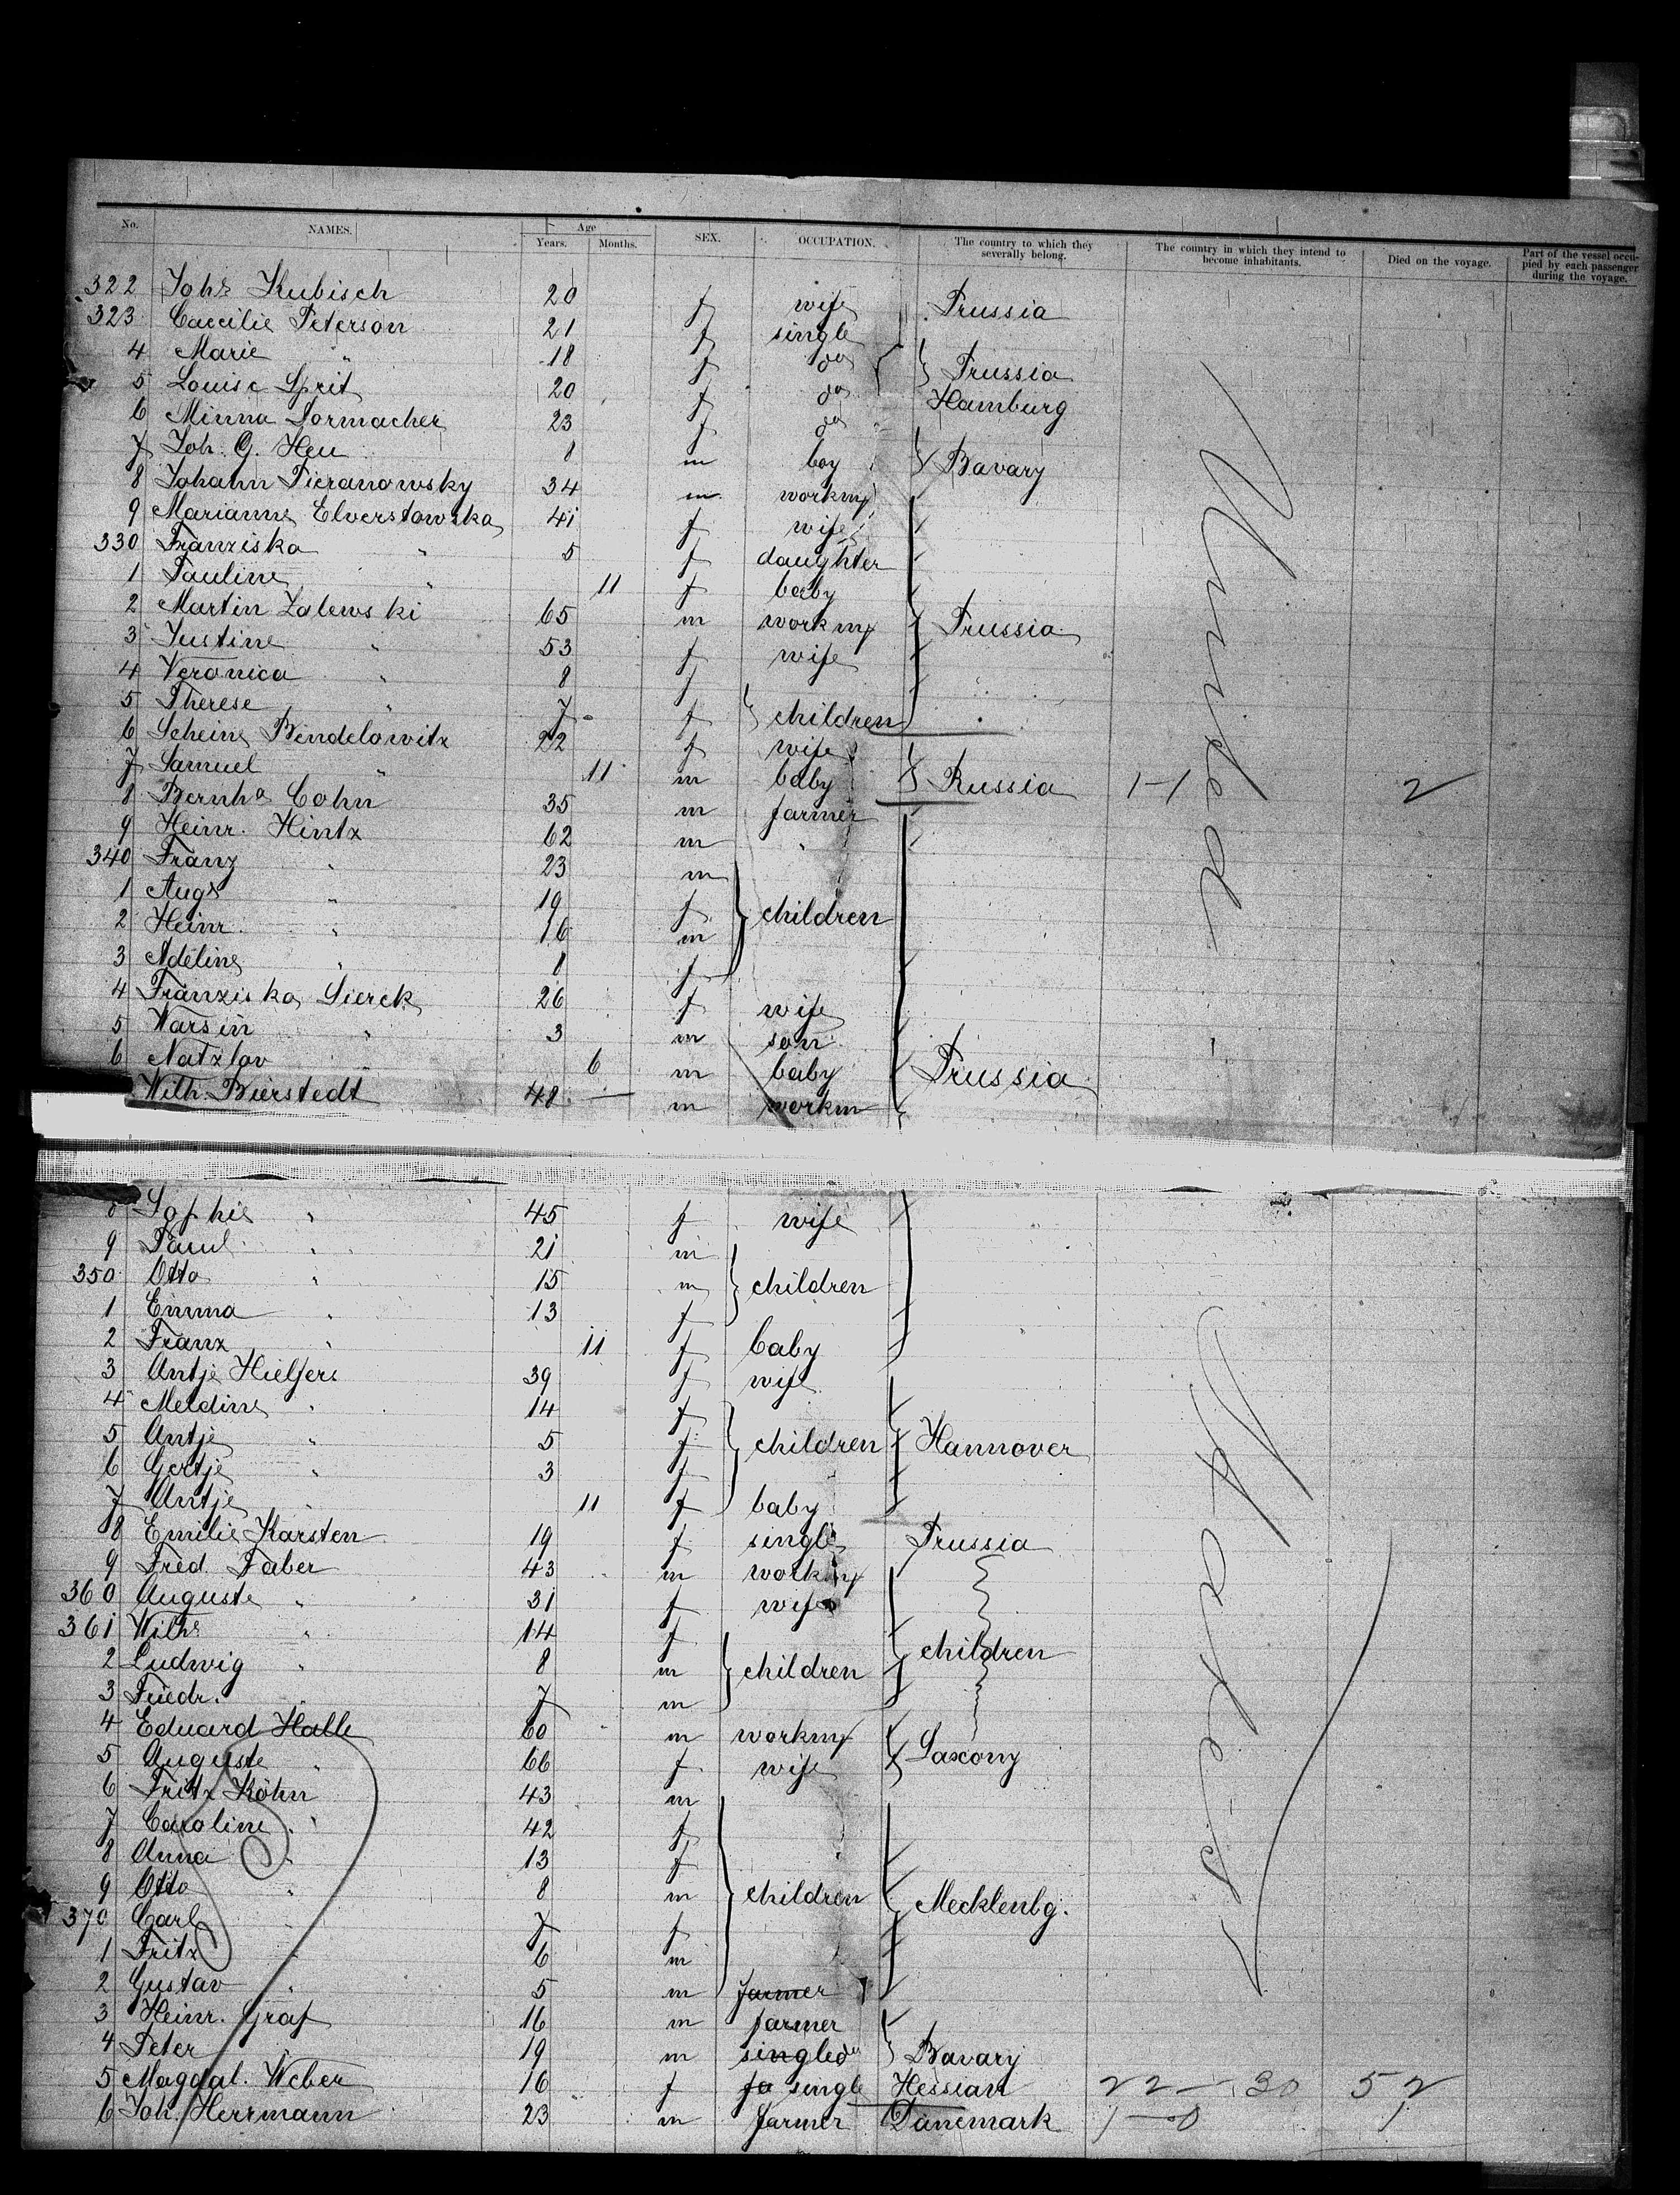 No. NAMES. Age Years. Months. SEX. OCCUPATION. The country to which they severally belong. The country in which they intend to become inhabitants. Died on the voyage. Part of the vessel occupied by each passenger during the voyage.
322 Johe Kubisch 20 f wife Prussia
323 Caecilie Peterson 21 f single
4 Marie " 18 f do Prussia
5 Louise Sprit 20 f do Hamburg
6 Minna Dormacher 23 f do
7 Joh. G. Heu 8 m boy Bavary
8 Johann Pieranowsky 34 m workmn
9 Marianne Elverstowska 41 f wife
330 Franziska " 5 f daughter
1 Pauline " 11 f baby
2 Martin Zalewski 65 m workmn Prussia
3 Justine " 53 f wife
4 Veronica " 8 f
5 Therese " 7 f children
6 Scheine Bendelowitz 22 f wife
7 Samuel " 11 m baby Russia 1-1 2
8 Bernhd Cohn 35 m farmer
9 Heinr. Hintz 62 m "
340 Franz " 23 m
1 Augs " 19 f children
2 Heinr. " 16 m
3 Adeline " 8 f
4 Franziska Sierck 26 f wife
5 Warsin " 3 m son
6 Natzlov " 6 m baby Prussia
Wilh. Bierstedt 48 — m workm
8 Sophie " 45 f wife
9 Paul " 21 m
350 Otto " 15 m children
1 Emma " 13 f
2 Franz " 11 f baby
3 Antje Hielfers 39 f wife
4 Meldine " 14 f
5 Antje " 5 f children Hannover
6 Gertje " 3 f
7 Antje " 11 f baby
8 Emilie Karsten 19 f single Prussia
9 Fred. Faber 43 m workmn
360 Auguste " 31 f wife
361 Wilhe " 14 f
2 Ludwig " 8 m children children
3 Friedr. " 7 m
4 Eduard Halle 60 m workmn
5 Auguste " 66 f wife Saxony
6 Fritz Köhn 43 m
7 Caroline " 42 f
8 Anna " 13 f
9 Otto " 8 m children Mecklenbg.
370 Carl " 7 f
1 Fritz " 6 m
2 Gustav " 5 m farmer
3 Heinr. Graf 16 m farmer
4 Peter " 19 m single do Bavary
5 Magdal. Weber 16 f fa single Hessian 22 - 30 52
6 Joh. Herrmann 23 m farmer Danemark 1-0 1
United
States